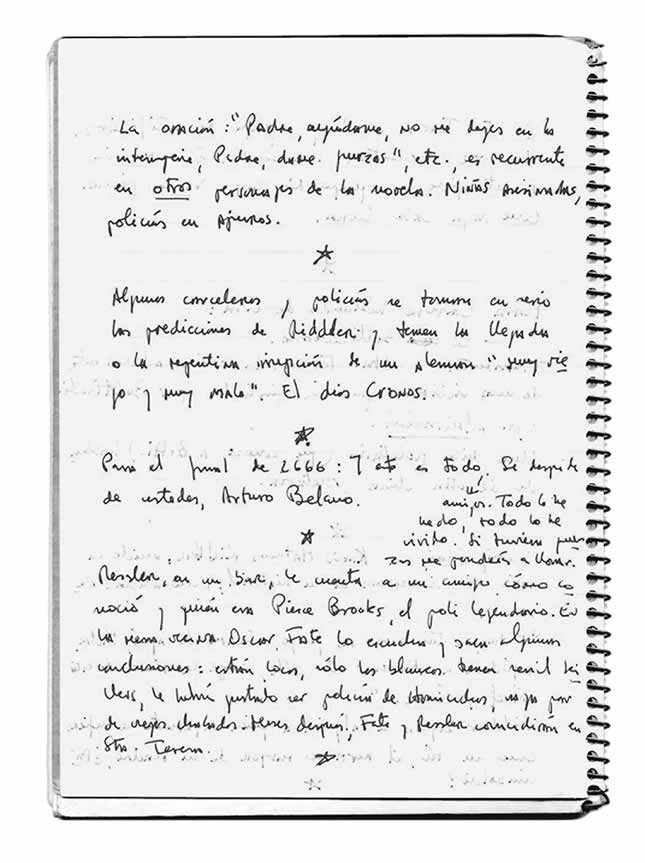 La oración: "Padre, ayúdame, no me dejes en la
intemperie, Padre, dame fuerzas", etc., es recurrente
en otros personajes de la novela. Niñas asesinadas,
policías en apuros.
Algunos carceleros y policías se toman en serio
las predicciones de Riddler y temen la llegada
o la repentina irrupción de un alemán "muy vie
jo y muy malo". El dios CRONOS.
Para el final de 2666: Y esto es todo, Se despide
de ustedes, Arturo Belano.
amigos. Todo lo he
hecho, todo lo he
vivido. Si tuviera fuer
zas me pondría a llorar.
Ressler, en un bar, le cuenta a un amigo cómo co
noció y quién era Pierce Brooks, el poli legendario. En
la mesa vecina Oscar Fate lo escucha y saca algunas
conclusiones: están locos, sólo los blancos tienen serial ki
llers, le habría gustado ser policía de homicidios,
de viejos chalados. Meses después, Fate y Ressler coincidirán en
Sta. Teresa.